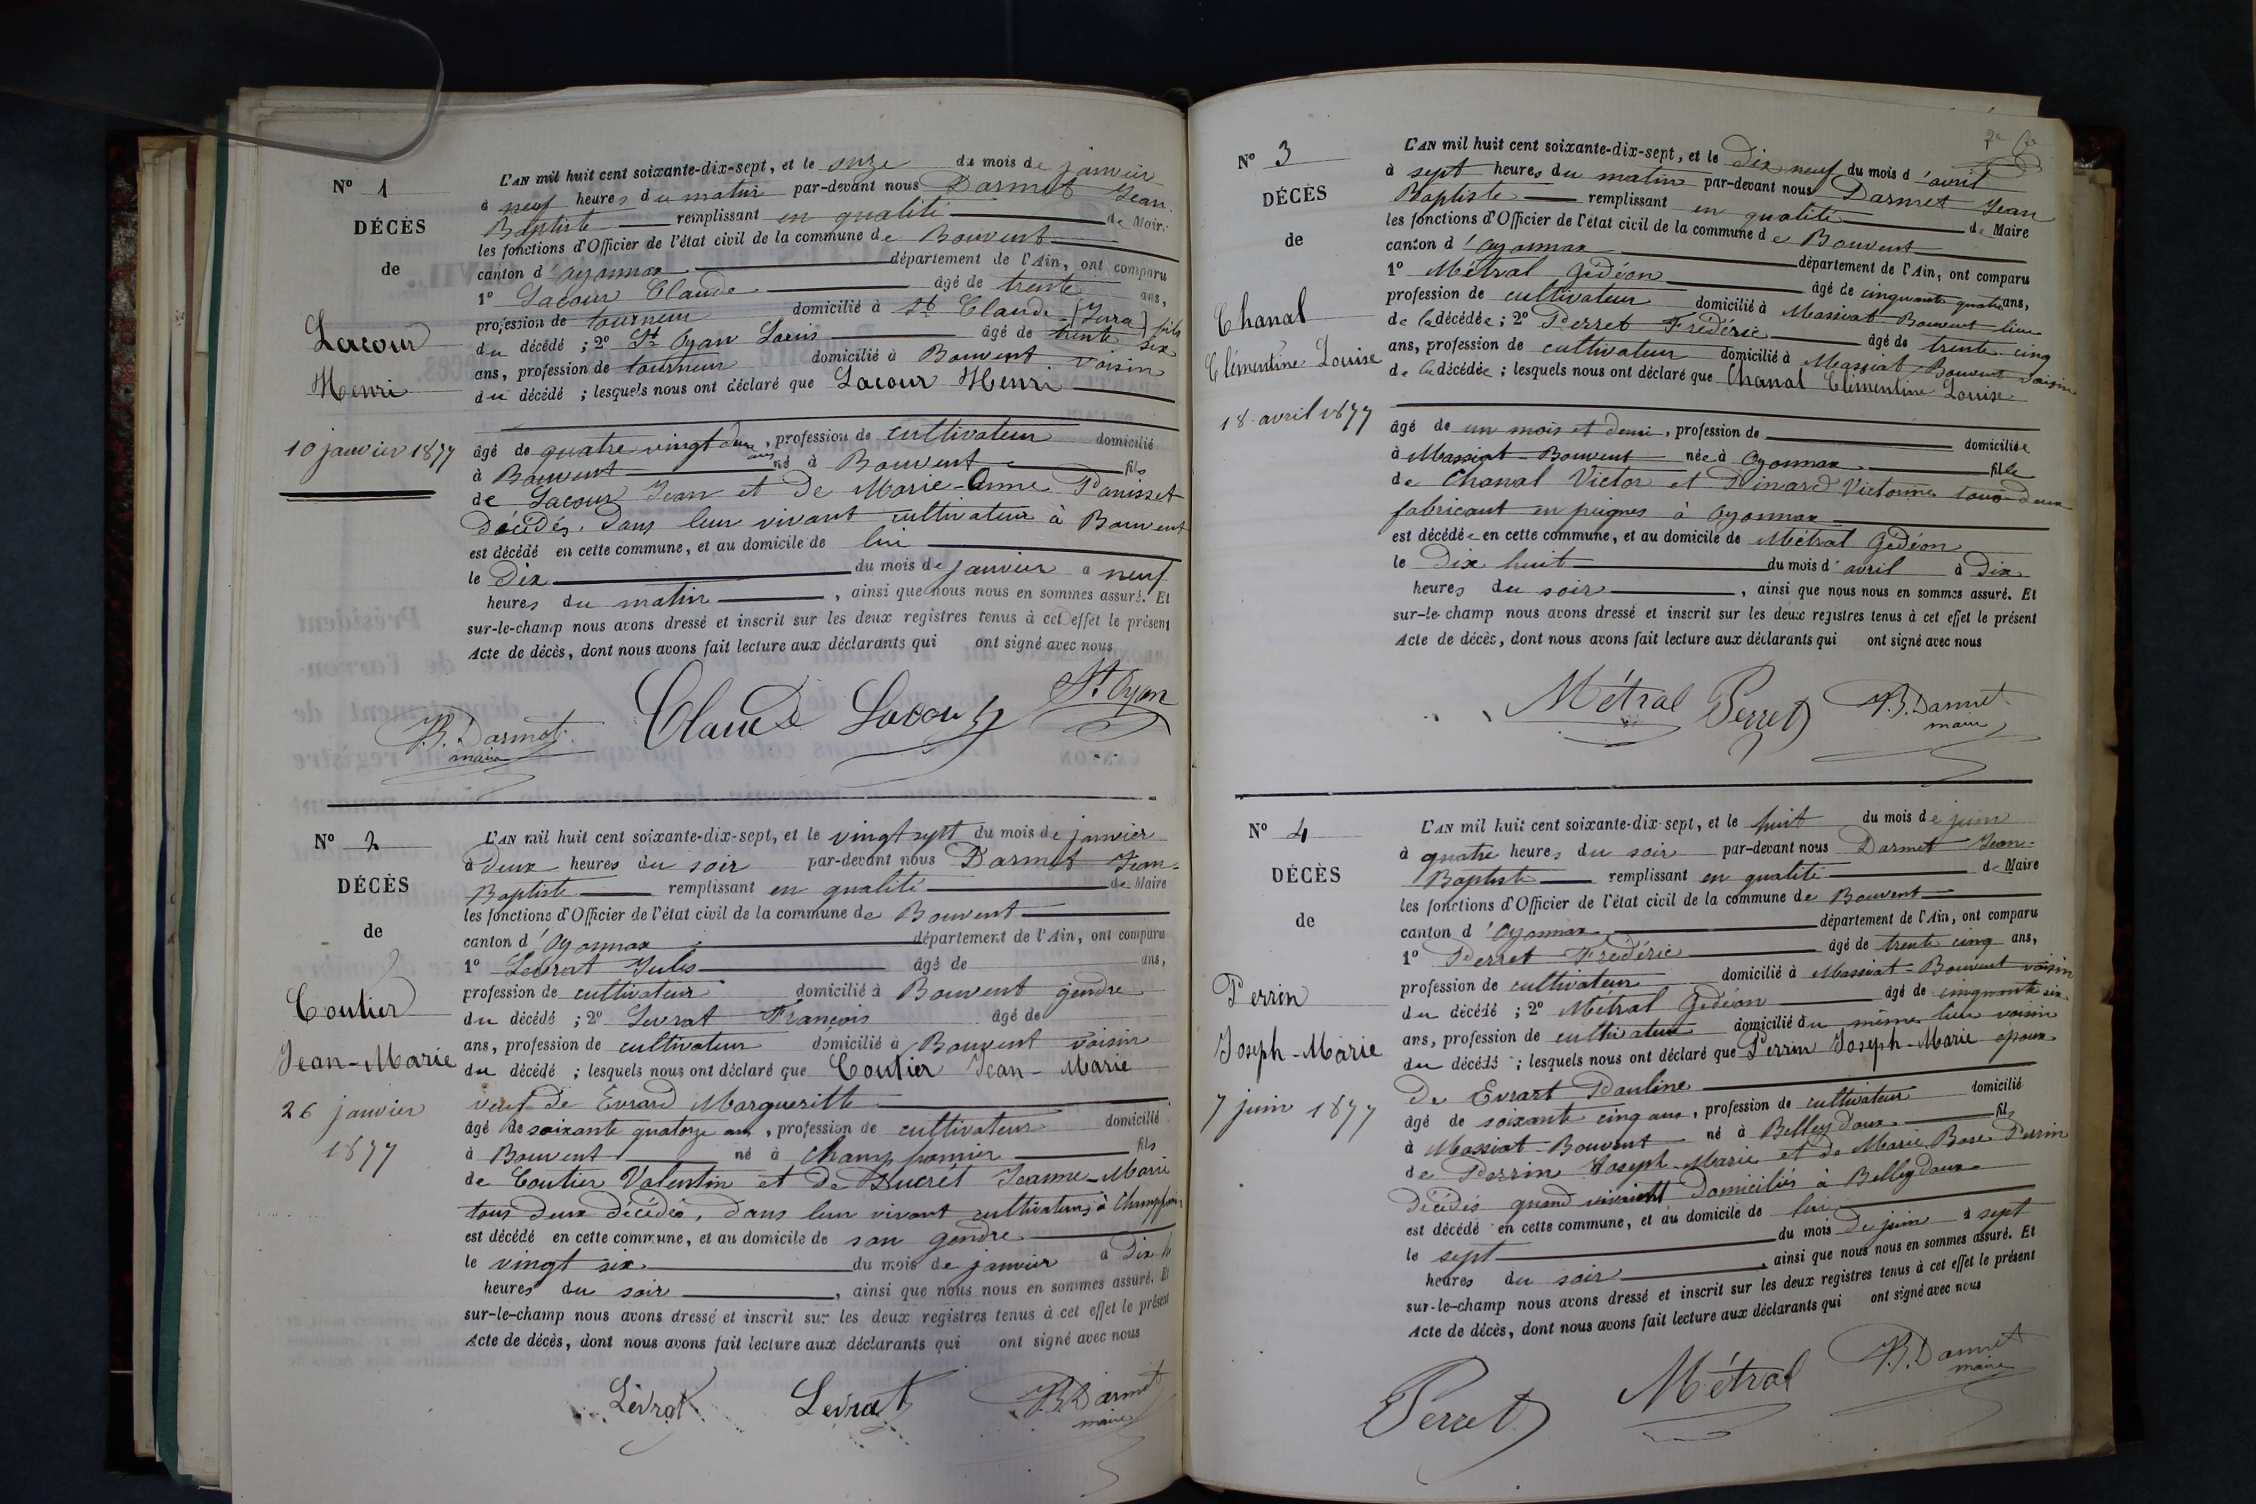 N° 1
DÉCÈS
de
Lacour
Henri
10 janvier 1877
L'AN mil huit cent soixante-dix-sept, et le onze du mois de janvier
à neuf heures du matin par-devant nous Darmet Jean
Baptiste remplissant en qualité de Maire
les fonctions d'Officier de l'état civil de la commune de Bouvent
canton d'Oyonnax département de l'Ain, ont comparu
1° Lacour Claude âgé de trente ans,
profession de tourneur domicilié à St Claude (Jura) fils
du décédé ; 2° St Oyan Louis âgé de trente six
ans, profession de tourneur domicilié à Bouvent voisin
du décédé ; lesquels nous ont déclaré que Lacour Henri
âgé de quatre vingt deux ans, profession de cultivateur domicilié
à Bouvent né à Bouvent fils
de Lacour Jean et de Marie-Anne Panisset
décédés. Dans leur vivant cultivateur à Bouvent
est décédé en cette commune, et au domicile de lui
le dix du mois de janvier à neuf
heures du matin, ainsi que nous nous en sommes assuré. Et
sur-le-champ nous avons dressé et inscrit sur les deux registres tenus à cet effet le présent
Acte de décès, dont nous avons fait lecture aux déclarants qui ont signé avec nous
J.B. Darmet Claude Lacour St. Oyan
maire
N° 2
DÉCÈS
de
Coutier
Jean-Marie
26 janvier
1877
L'AN mil huit cent soixante-dix-sept, et le vingt sept du mois de janvier
à deux heures du soir par-devant nous Darmet Jean-
Baptiste remplissant en qualité de Maire
les fonctions d'Officier de l'état civil de la commune de Bouvent
canton d'Oyonnax département de l'Ain, ont comparu
1° Levrat Jules âgé de ans,
profession de cultivateur domicilié à Bouvent gendre
du décédé ; 2° Levrat François âgé de
ans, profession de cultivateur domicilié à Bouvent voisin
du décédé ; lesquels nous ont déclaré que Coutier Jean-Marie
veuf de Evrard Margueritte
âgé de soixante quatorze ans, profession de cultivateur domicilié
à Bouvent né à Champfromier fils
de Coutier Valentin et de Ducrêt Jeanne-Marie
tous deux décédés, dans leur vivant cultivateurs à
est décédé en cette commune, et au domicile de son gendre
le vingt six du mois de janvier à dix
heures du soir, ainsi que nous nous en sommes assuré. Et
sur-le-champ nous avons dressé et inscrit sur les deux registres tenus à cet effet le présent
Acte de décès, dont nous avons fait lecture aux déclarants qui ont signé avec nous
Levrat Levrat J.B. Darmet
maire
N° 3
DÉCÈS
de
Chanal
Clémentine Louise
18 avril 1877
L'AN mil huit cent soixante-dix-sept, et le Dix neuf du mois d'avril
à sept heures du matin par-devant nous Darmet Jean
Baptiste remplissant en qualité de Maire
les fonctions d'Officier de l'état civil de la commune de Bouvent
canton d'Oyonnax département de l'Ain, ont comparu
1° Métral Gédéon âgé de cinquante quatre ans,
profession de cultivateur domicilié à Massiat-Bouvent
de la décédée ; 2° Perret Frédéric âgé de trente cinq
ans, profession de cultivateur domicilié à Massiat-Bouvent voisin
de la décédée ; lesquels nous ont déclaré que Chanal Clémentine Louise
âgé de un mois et demi, profession de domiciliée
à Massiat-Bouvent née à Oyonnax fille
de Chanal Victor et Dinard Victorine tous deux
fabricant en peignes à Oyonnax
est décédée en cette commune, et au domicile de Métral Gédéon
le Dix huit du mois d'avril à Dix
heures du soir, ainsi que nous nous en sommes assuré. Et
sur-le-champ nous avons dressé et inscrit sur les deux registres tenus à cet effet le présent
Acte de décès, dont nous avons fait lecture aux déclarants qui ont signé avec nous
Métral Perret J.B. Darmet
maire
N° 4
DÉCÈS
de
Perrin
Joseph-Marie
7 juin 1877
L'AN mil huit cent soixante-dix-sept, et le huit du mois de juin
à quatre heures du soir par-devant nous Darmet Jean-
Baptiste remplissant en qualité de Maire
les fonctions d'Officier de l'état civil de la commune de Bouvent
canton d'Oyonnax département de l'Ain, ont comparu
1° Perret Frédéric âgé de trente cinq ans,
profession de cultivateur domicilié à Massiat-Bouvent voisin
du décédé ; 2° Métral Gédéon âgé de cinquante six
ans, profession de cultivateur domicilié du même lieu voisin
du décédé ; lesquels nous ont déclaré que Perrin Joseph-Marie époux
de Evrart Pauline
âgé de soixante cinq ans, profession de cultivateur domicilié
à Massiat-Bouvent né à Belleydoux fils
de Perrin Joseph-Marie et de Marie Rose Perrin
décédés quand vivaient domiciliés à Belleydoux
est décédé en cette commune, et au domicile de lui
le sept du mois de juin à sept
heures du soir, ainsi que nous nous en sommes assuré. Et
sur-le-champ nous avons dressé et inscrit sur les deux registres tenus à cet effet le présent
Acte de décès, dont nous avons fait lecture aux déclarants qui ont signé avec nous
Perret Métral J.B. Darmet
maire